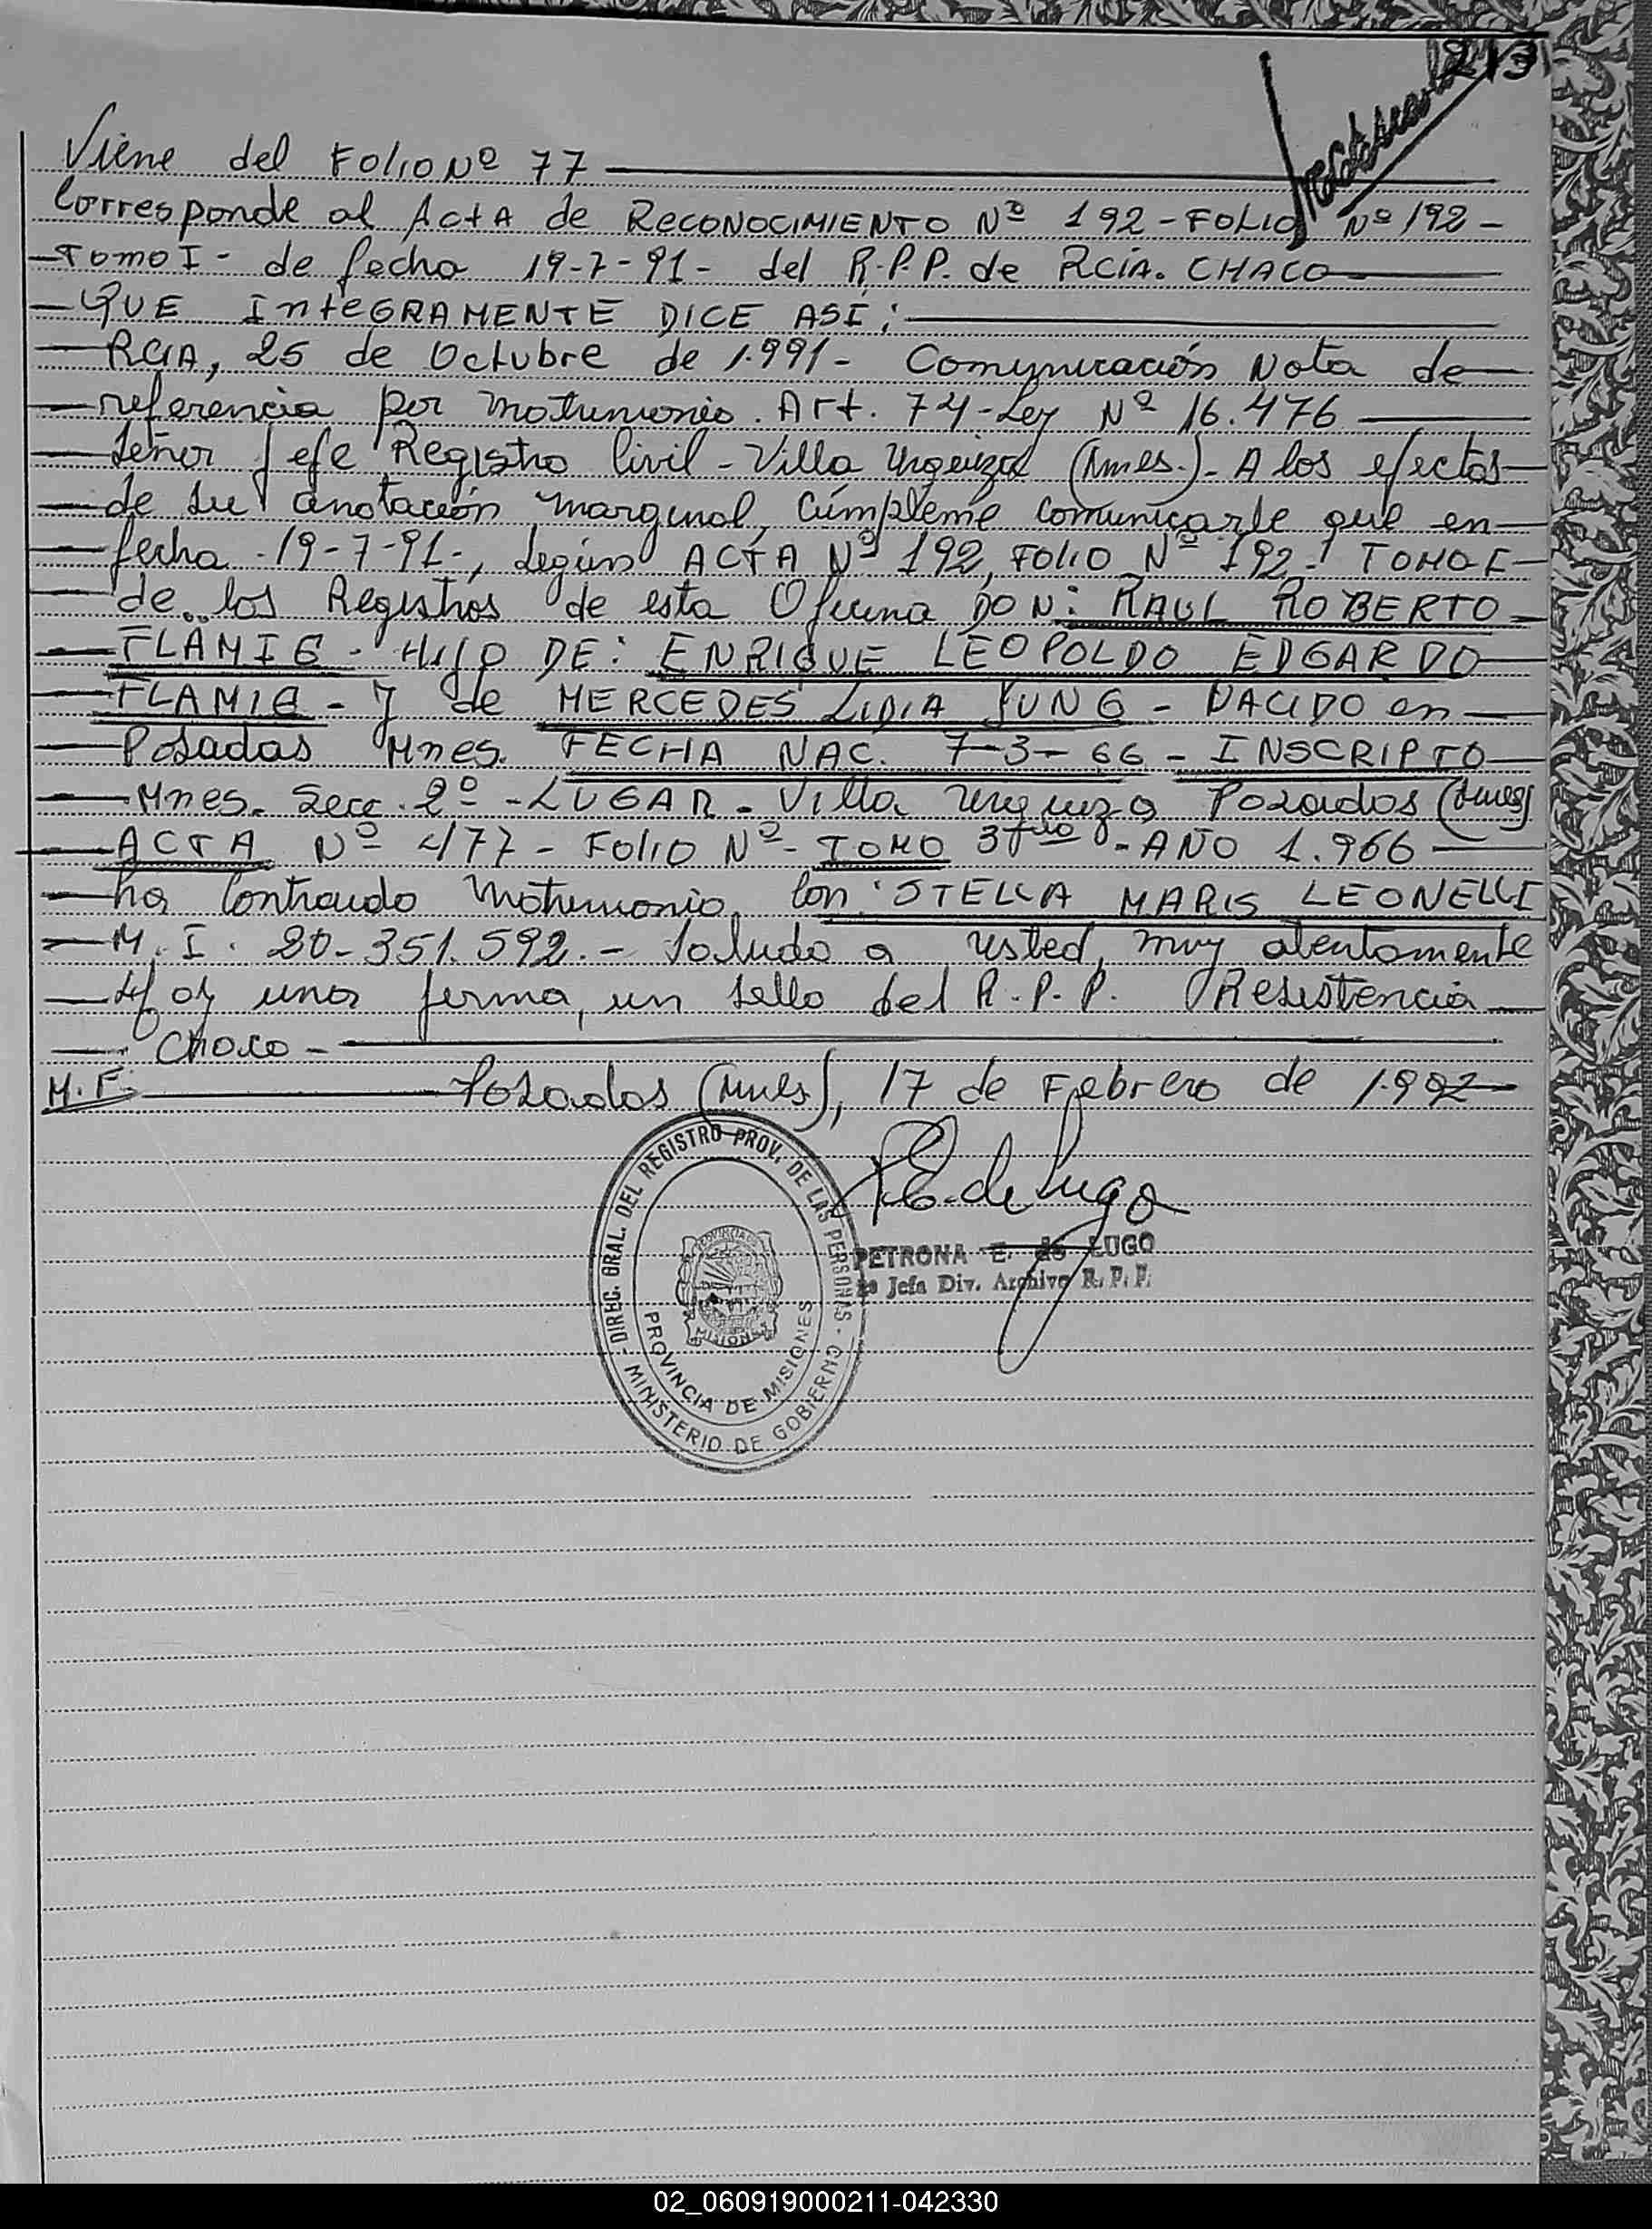 213
Viene del Folio Nº 77
Corresponde al Acta de RECONOCIMIENTO Nº 192 - FOLIO Nº 192 -
Tomo I - de fecha 19-7-91- del R.P.P. de RCIA. CHACO
QUE INTEGRAMENTE DICE ASÍ:
RCIA, 25 de Octubre de 1.991 - Comunicación Nota de
referencia por matrimonio. Art. 74 - Ley Nº 16.476
Señor Jefe Registro Civil - Villa Urquiza (Mnes.) - A los efectos
de su anotación marginal, cúmpleme comunicarle que en
fecha 19-7-91-, según ACTA Nº 192, Folio Nº 192 - TOMO I
de los Registros de esta Oficina DON: RAUL ROBERTO
FLAMIG - HIJO DE: ENRIQUE LEOPOLDO EDGARDO
FLAMIG - Y de MERCEDES LIDIA JUNG - NACIDO en
Posadas Mnes. FECHA NAC. 7-3-66 - INSCRIPTO
Mnes. Secc. 2º - LUGAR - Villa Urquiza Posadas (Mnes)
ACTA Nº 477 - Folio Nº - TOMO 3 - AÑO 1.966
ha Contraido Matrimonio, Con STELLA MARIS LEONELLI
M. I. 20-351.592. - Saludo a usted, muy atentamente
Hay una firma, un sello del R.P.P. Resistencia
Chaco -
M.F. Posadas (Mnes), 17 de Febrero de 1.992
E. de Lugo
PETRONA E. de LUGO
Jefa Div. Archivo R. P. P.
DIREC. GRAL. DEL REGISTRO PROV. DE LAS PERSONAS -
MINISTERIO DE GOBIERNO
PROVINCIA DE MISIONES
MISIONES
02_060919000211-042330